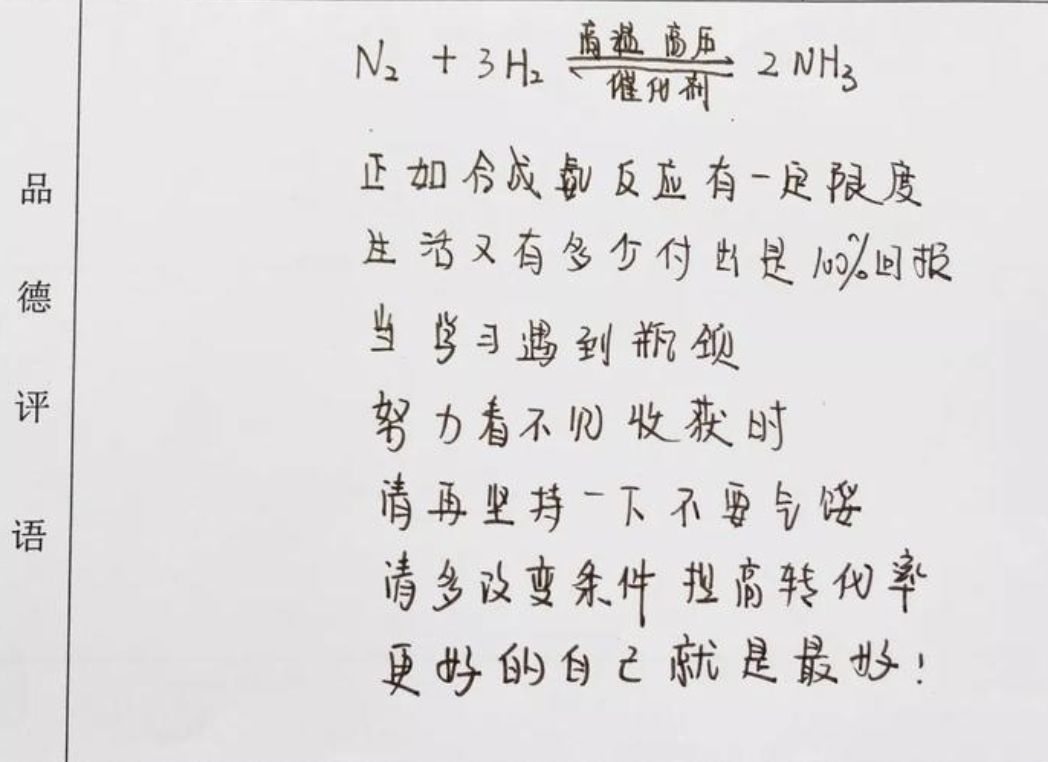 品德评语
N₂ + 3H₂ ⇌ 2NH₃
高温 高压
催化剂
正如合成氨反应有一定限度
生活又有多少付出是100%回报
当学习遇到瓶颈
努力看不见收获时
请再坚持一下不要气馁
请多改变条件 提高转化率
更好的自己就是最好！